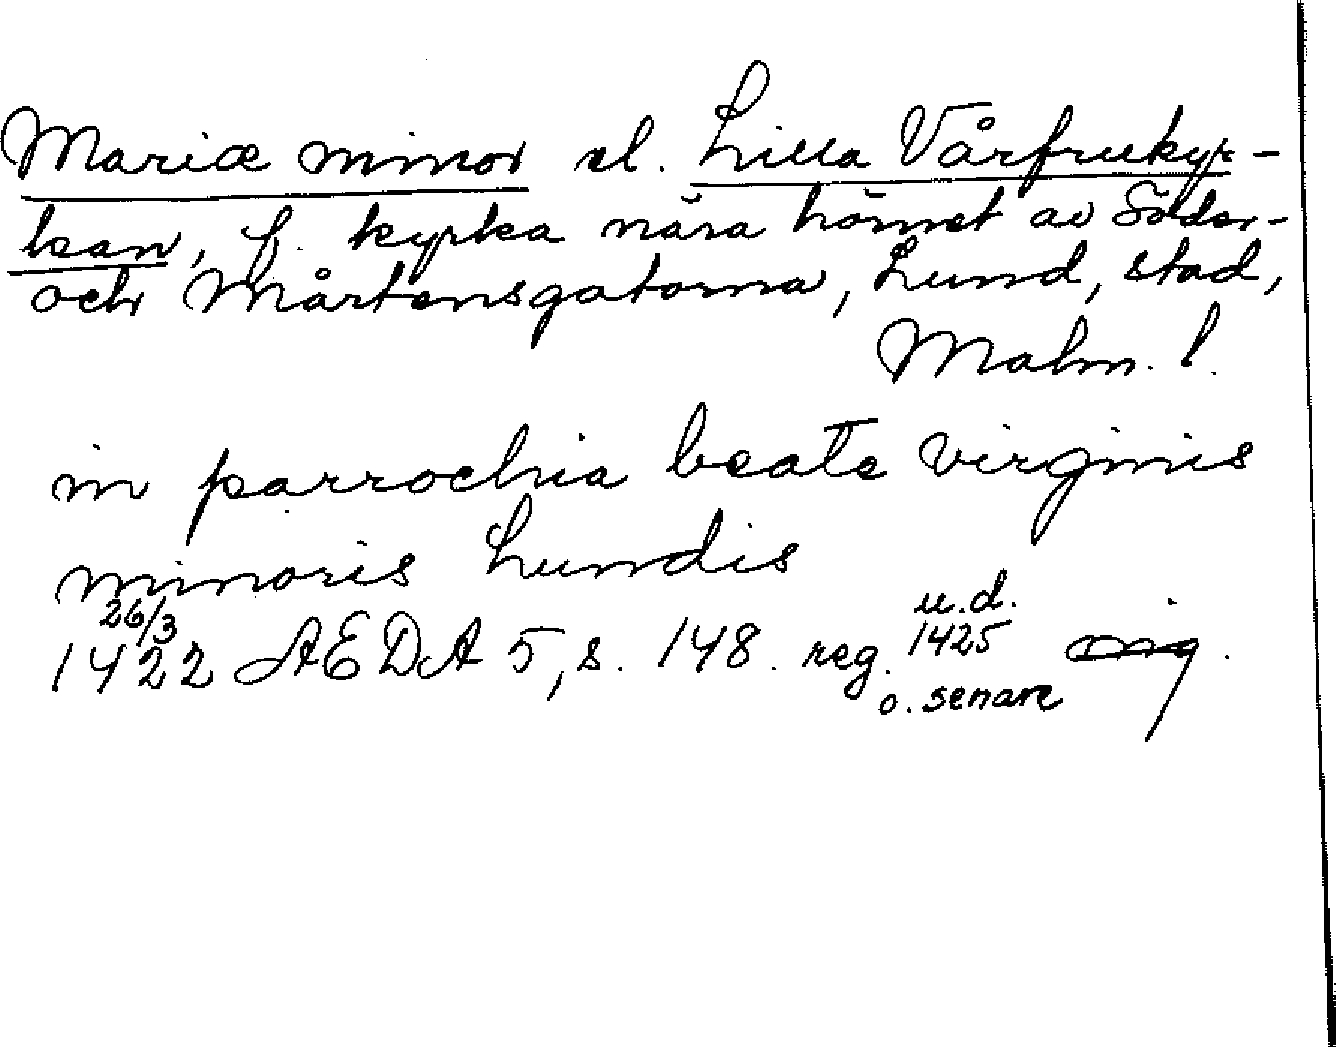 Mariæ minor el. Lilla Vårfrukyr-
kan, f. kyrka nära hörnet av Söder-
och Mårtensgatorna, Lund, stad,
Malm. l.
in parrochia beate virginis
minoris Lundis
26/3 u.d.
1422 AEDA 5, s. 148. reg. 1425
o. senare